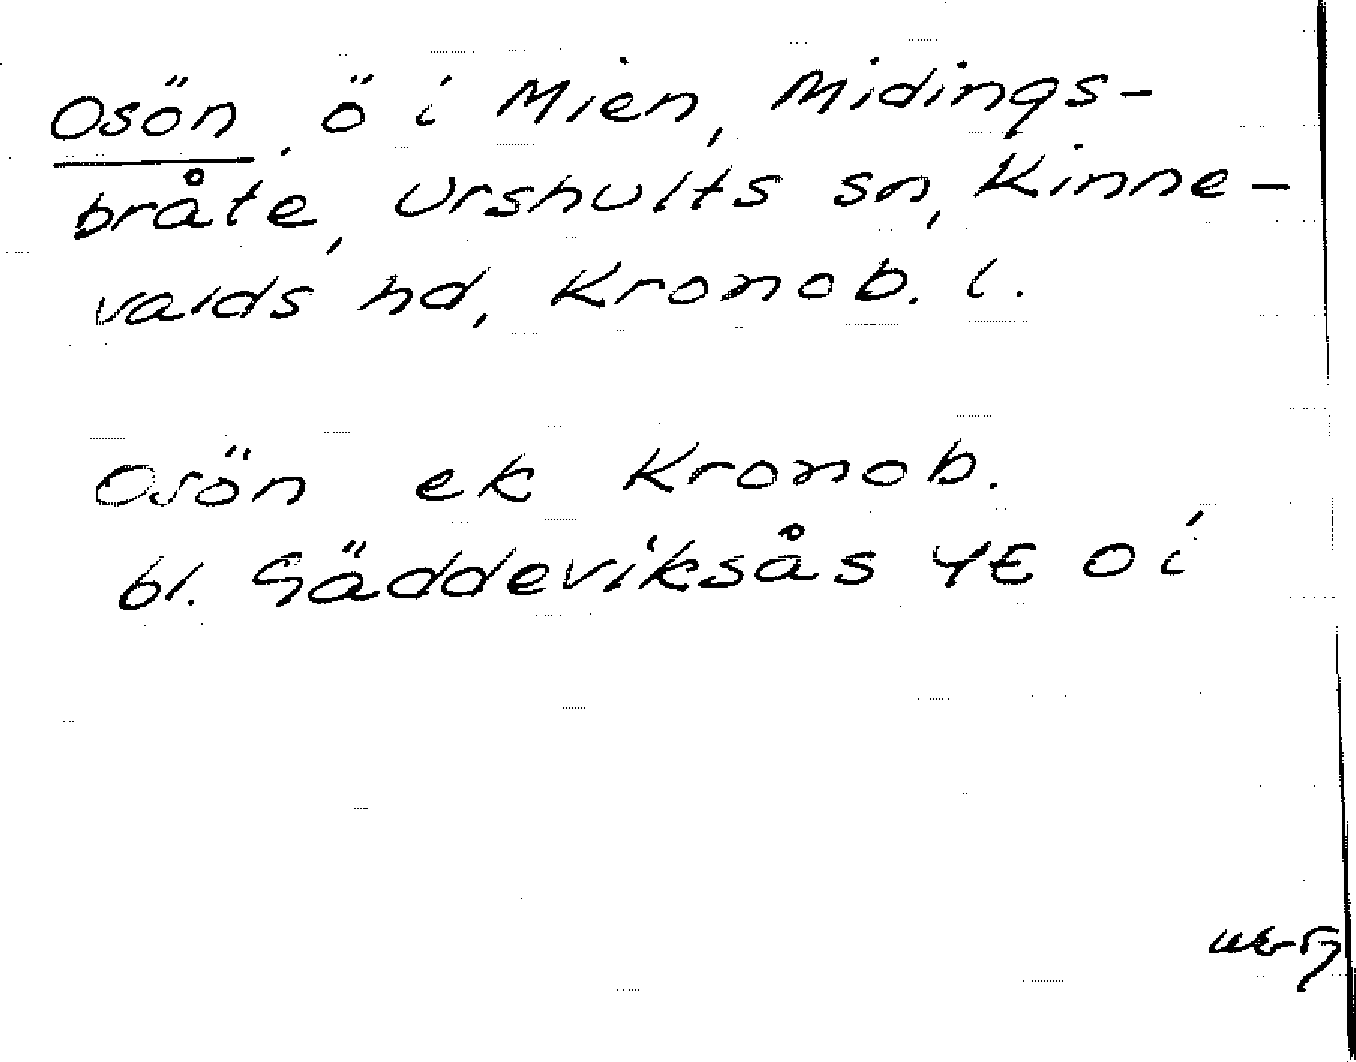 Osön, ö i Mien, Midings-
bråte, Urshults sn, Kinne-
valds hd, Kronob. l.
Osön ek Kronob.
bl. Gäddeviksås 4E 0i